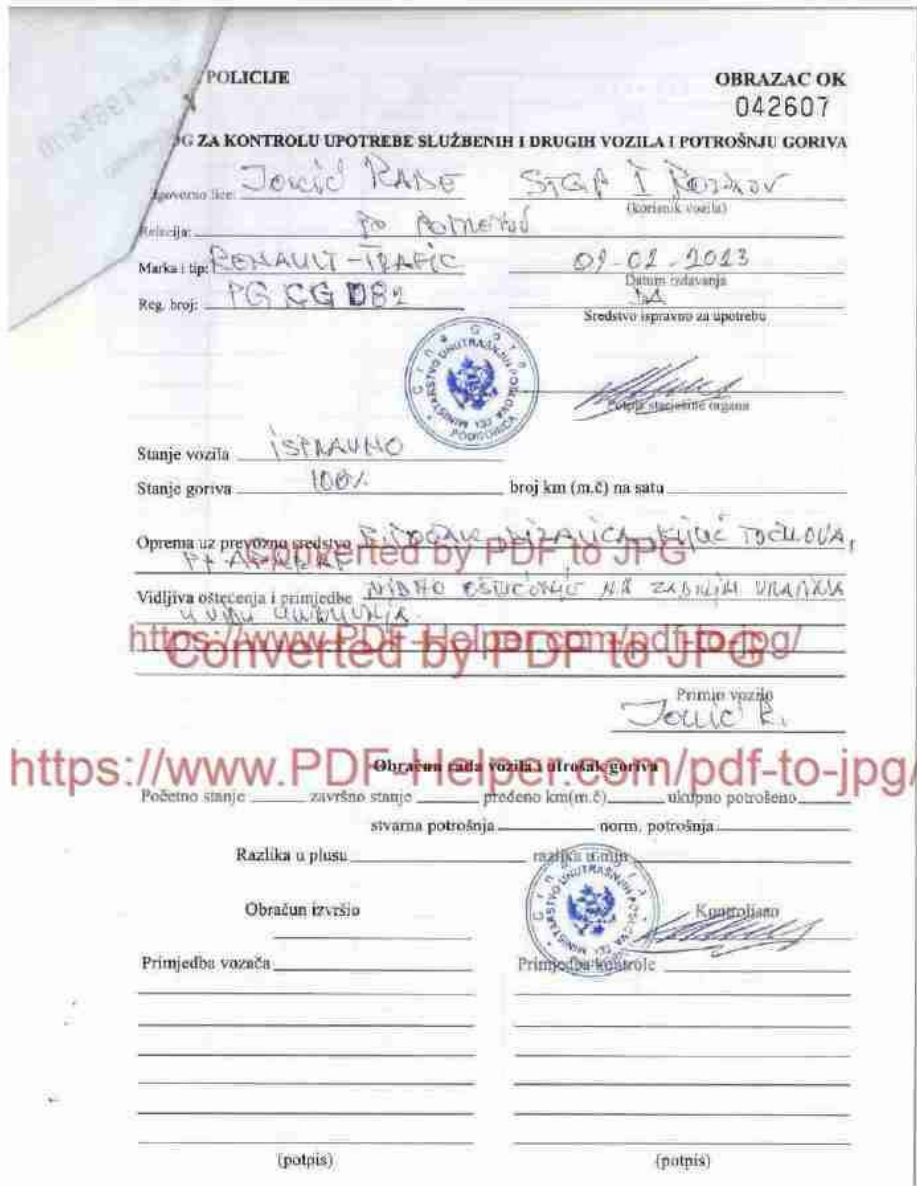 POLICIJE
OBRAZAC OK
042607
ZA KONTROLU UPOTREBE SLUŽBENIH I DRUGIH VOZILA I POTROŠNJU GORIVA
Jonić RADE
lice:
(korisnik vozila)
Relacija: po
Marka i tip: RENAULT-TRAFIC
2013
Datum izdavanja
Reg. broj: PG CG D82
DA
Sredstvo ispravno za upotrebu
Crna Gora
MINISTARSTVO UNUTRAŠNJIH POSLOVA
PODGORICA
Potpis starješine organa
Stanje vozila ISPRAVNO
Stanje goriva 100% broj km (m.č) na satu
Oprema uz prevozno sredstvo DIZALICA, KLJUČ TOČKOVA,
PP APARAT
Converted by PDF to JPG
Vidljiva oštećenja i primjedbe VIDNO OŠTEĆENJE NA ZADNJIM VRATIMA
U VIDU
https://www.PDF-Helper.com/pdf-to-jpg/
Converted by PDF to JPG
Primio vozilo
Jonić R.
https://www.PDF-Helper.com/pdf-to-jpg/
Obračun rada vozila i utrošak goriva
Početno stanje završno stanje pređeno km(m.č) ukupno potrošeno
stvarna potrošnja norm. potrošnja
Razlika u plusu razlika u
Crna Gora
MINISTARSTVO UNUTRAŠNJIH POSLOVA
Obračun izvršio
Kontrolisao
Primjedba vozača
Primjedba kontrole
(potpis)
(potpis)